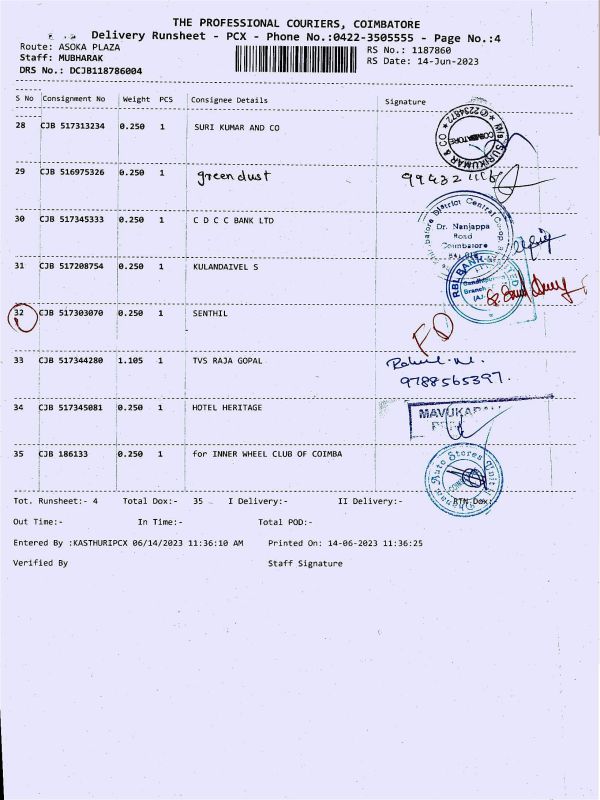 THE PROFESSIONAL COURIERS, COIMBATORE
Delivery Runsheet - PCX - Phone No.:0422-3505555 - Page No.:4
Route: ASOKA PLAZA
RS No.: 1187860
Staff: MUBHARAK
RS Date: 14-Jun-2023
DRS No.: DCJB118786004
S No Consignment No Weight PCS Consignee Details Signature
28 CJB 517313234 0.250 1 SURI KUMAR AND CO
SURIKUMAR & CO
COIMBATORE
29 CJB 516975326 0.250 1 greendust
30 CJB 517345333 0.250 1 C D C C BANK LTD
District Central Co-op
Dr. Nanjappa
Road
Coimbatore
31 CJB 517208754 0.250 1 KULANDAIVEL S
RBL BANK LIMITED
Branch
32 CJB 517303070 0.250 1 SENTHIL
33 CJB 517344280 1.105 1 TVS RAJA GOPAL
Rahul.N.
9788565397.
34 CJB 517345081 0.250 1 HOTEL HERITAGE
35 CJB 186133 0.250 1 for INNER WHEEL CLUB OF COIMBA
Auto Stores
Tot. Runsheet:- 4 Total Dox:- 35 I Delivery:- II Delivery:- RTN Dox:
Out Time:- In Time:- Total POD:-
Entered By :KASTHURIPCX 06/14/2023 11:36:10 AM Printed On: 14-06-2023 11:36:25
Verified By Staff Signature